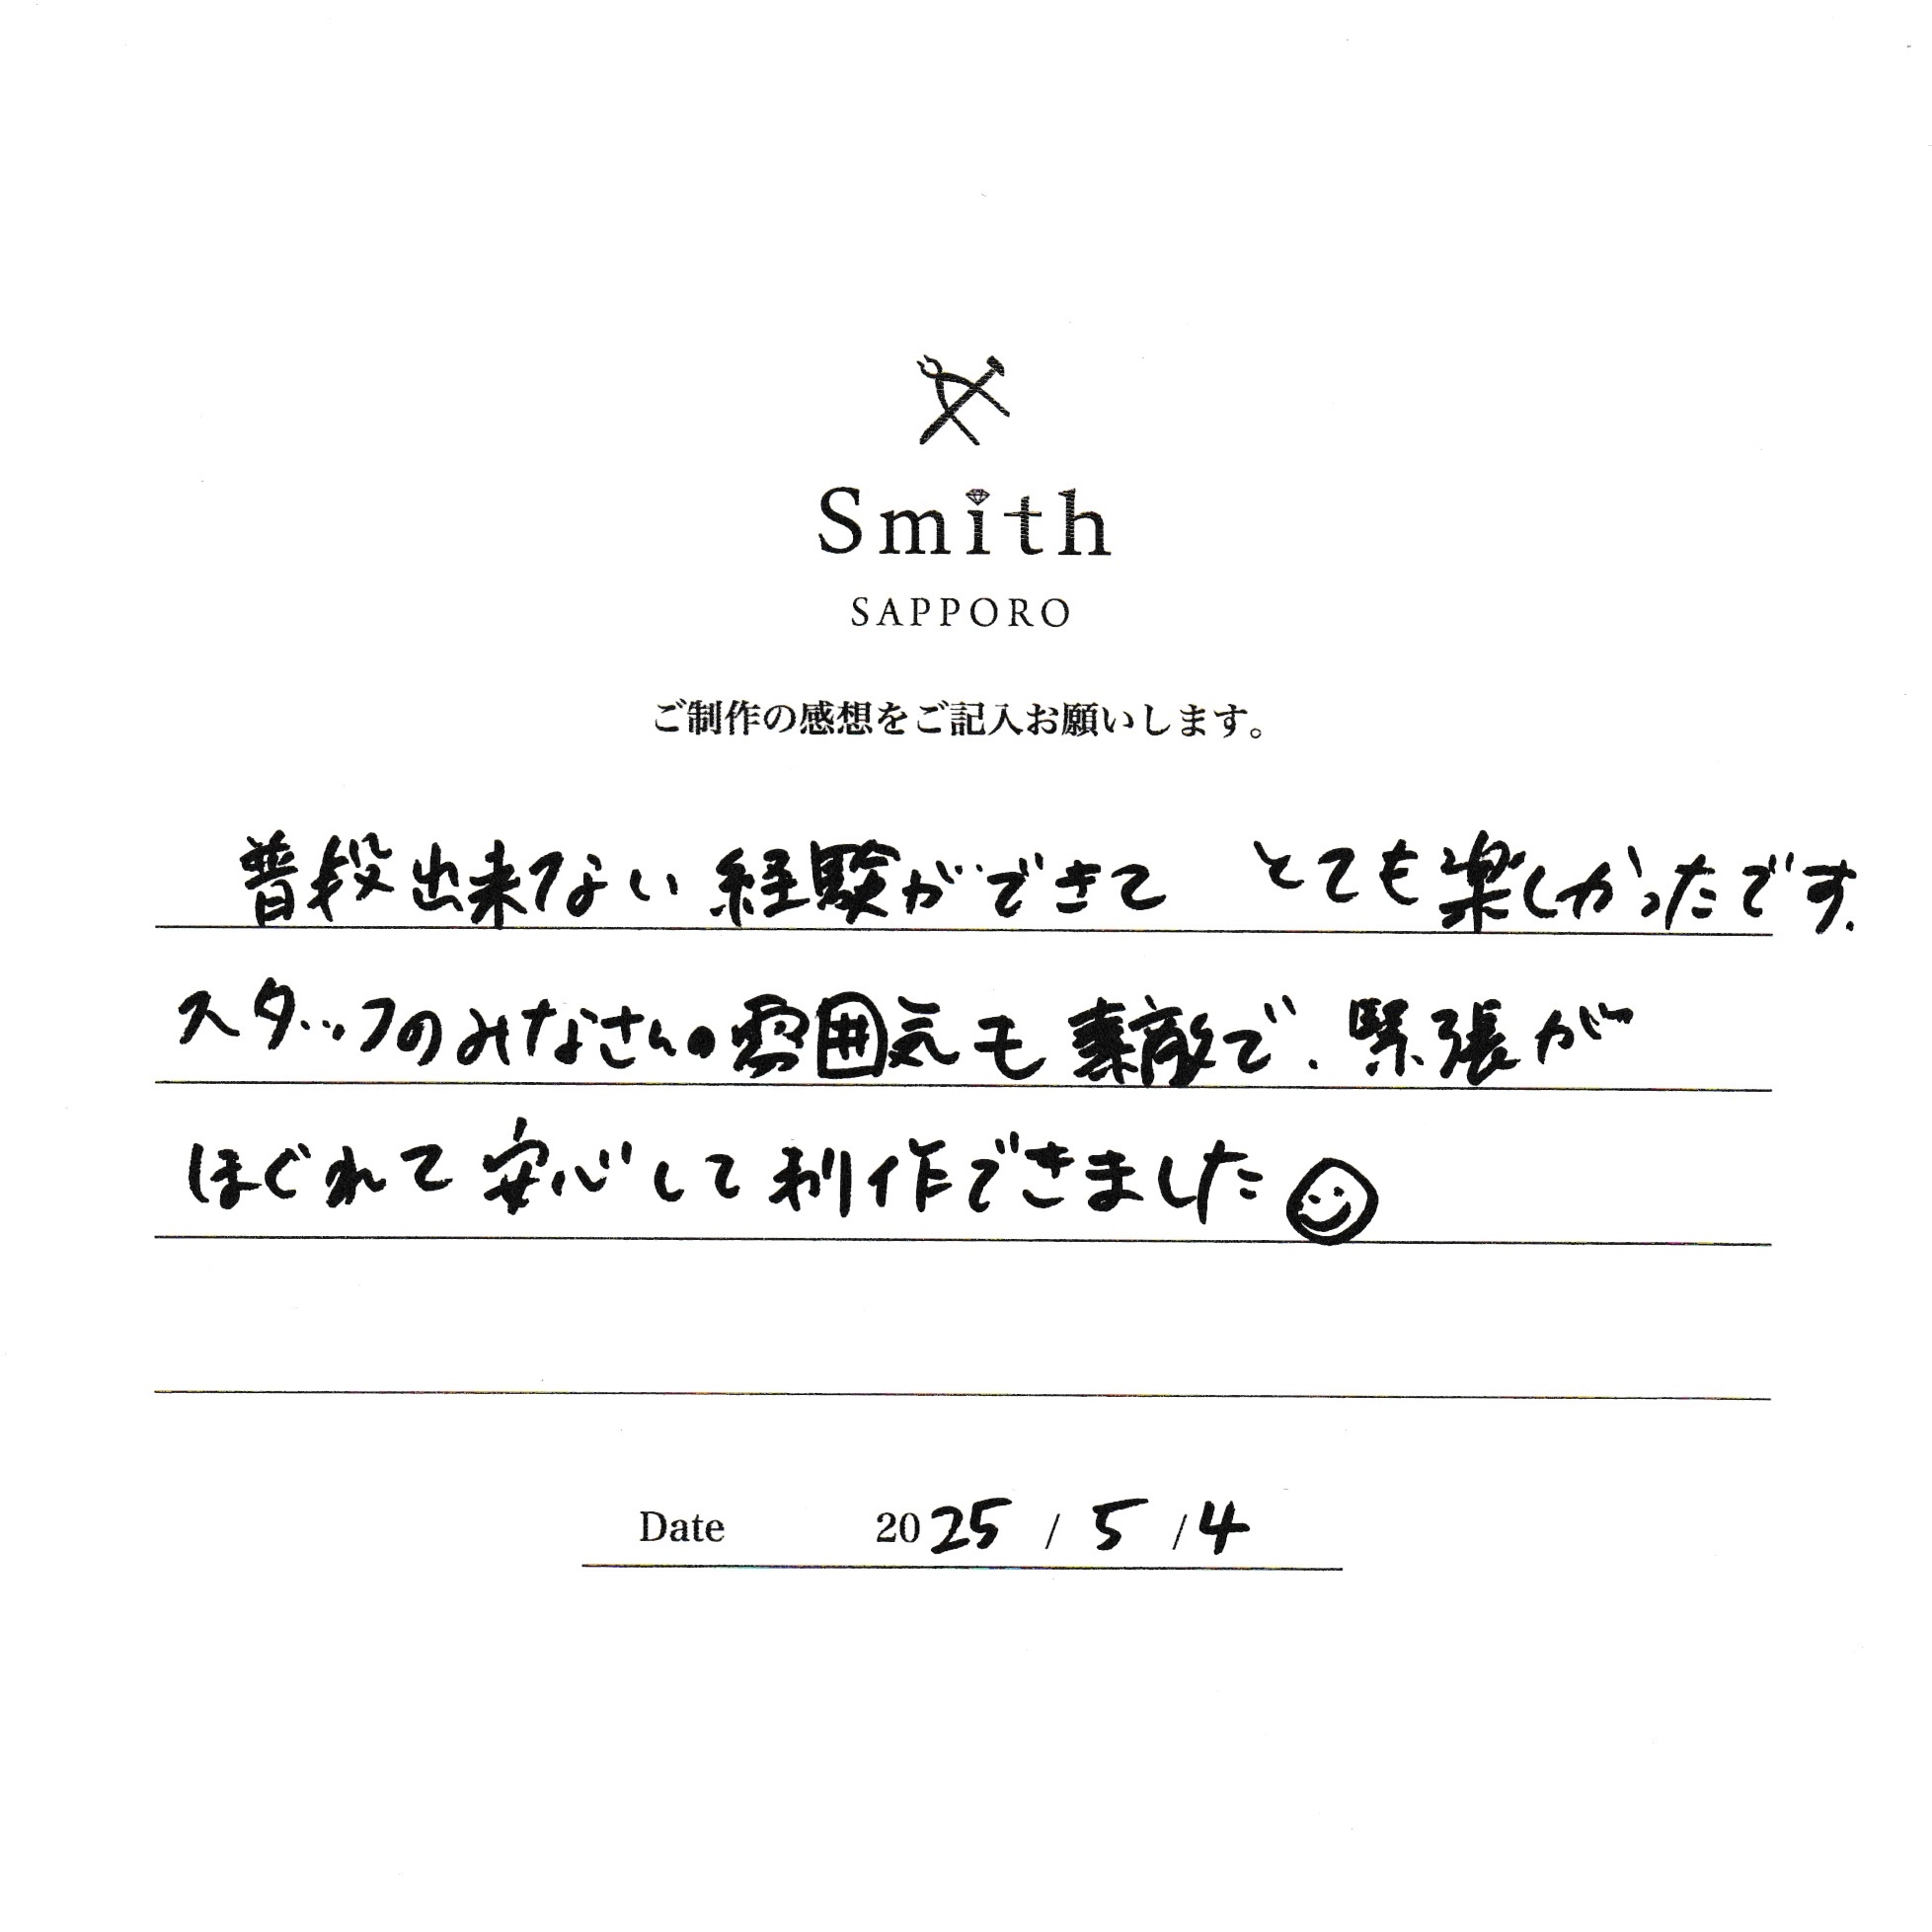 Smith
SAPPORO
ご制作の感想をご記入お願いします。
普段出来ない経験ができて とても楽しかったです.
スタッフのみなさんの雰囲気も素敵で.緊張が
ほぐれて安心して制作できました
Date 2025 / 5 / 4